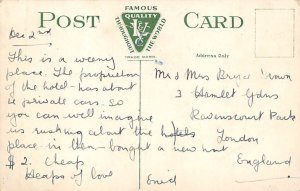 POST CARD
FAMOUS
QUALITY
THROUGHOUT THE WORLD
TRADE MARK.
Address Only
Dec 2nd
This is a weeny
place. The proprietor
of the hotel has about
private cars. So
you can well imagine
rushing about the hotels
place in them - bought a new hat
$2. Cheap
Heaps of love
Enid
Mr & Mrs Bryce Brown
3 Hamlet Gdns
Ravenscourt Park
London
England